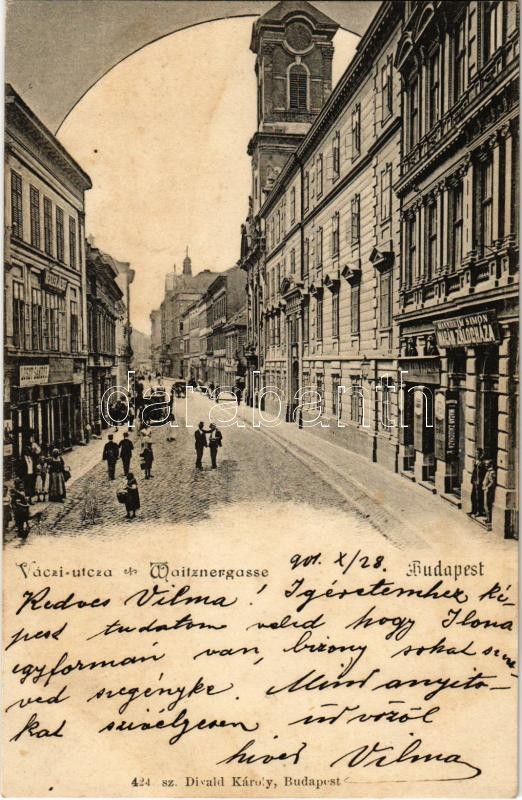 MANNHEIM SIMON
MAGÁN ZÁLOGHÁZA
darabanth.com
Váczi-utcza Waitznergasse
901. X/28.
Budapest
Kedves Vilma! Igéretemhez ké-
pest tudatom veled hogy Ilona
egyformán van, bizony sokat szen-
ved szegényke. Mind anyitó-
kat szivélyesen üdvözöl
hived Vilma
424 sz. Divald Károly, Budapest